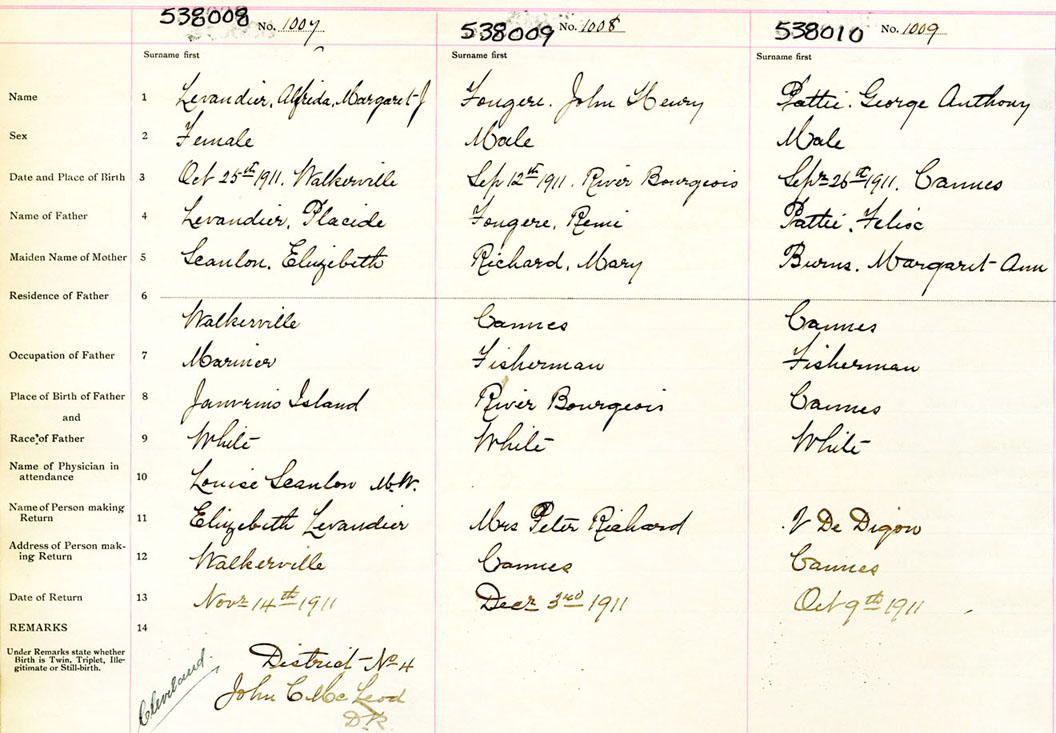 538008 No. 1007 538009 No. 1008 538010 No. 1009
Surname first Surname first Surname first
Name 1 Levandier, Alfrida, Margaret J Fougere. John Henry Pattie. George Anthony
Sex 2 Female Male Male
Date and Place of Birth 3 Oct 25th 1911. Walkerville Sep 12th 1911. River Bourgeois Sepr 26th 1911. Cannes
Name of Father 4 Levandier, Placide Fougere, Remi Pattie, Felise
Maiden Name of Mother 5 Scanlon, Elizebeth Richard, Mary Burns. Margaret Ann
Residence of Father 6
Walkerville Cannes Cannes
Occupation of Father 7 Mariner Fisherman Fisherman
Place of Birth of Father 8 Janvrins Island River Bourgeois Cannes
and
Race of Father 9 White White White
Name of Physician in
attendance 10 Louise Scanlon M.W.
Name of Person making
Return 11 Elizebeth Levandier Mrs Peter Richard V De Digon
Address of Person mak-
ing Return 12 Walkerville Cannes Cannes
Date of Return 13 Novr 14th 1911 Decr 3rd 1911 Oct 9th 1911
REMARKS 14
Under Remarks state whether
Birth is Twin, Triplet, Ille-
gitimate or Still-birth.
District No 4
Cleveland.
John C McLeod
D.R.